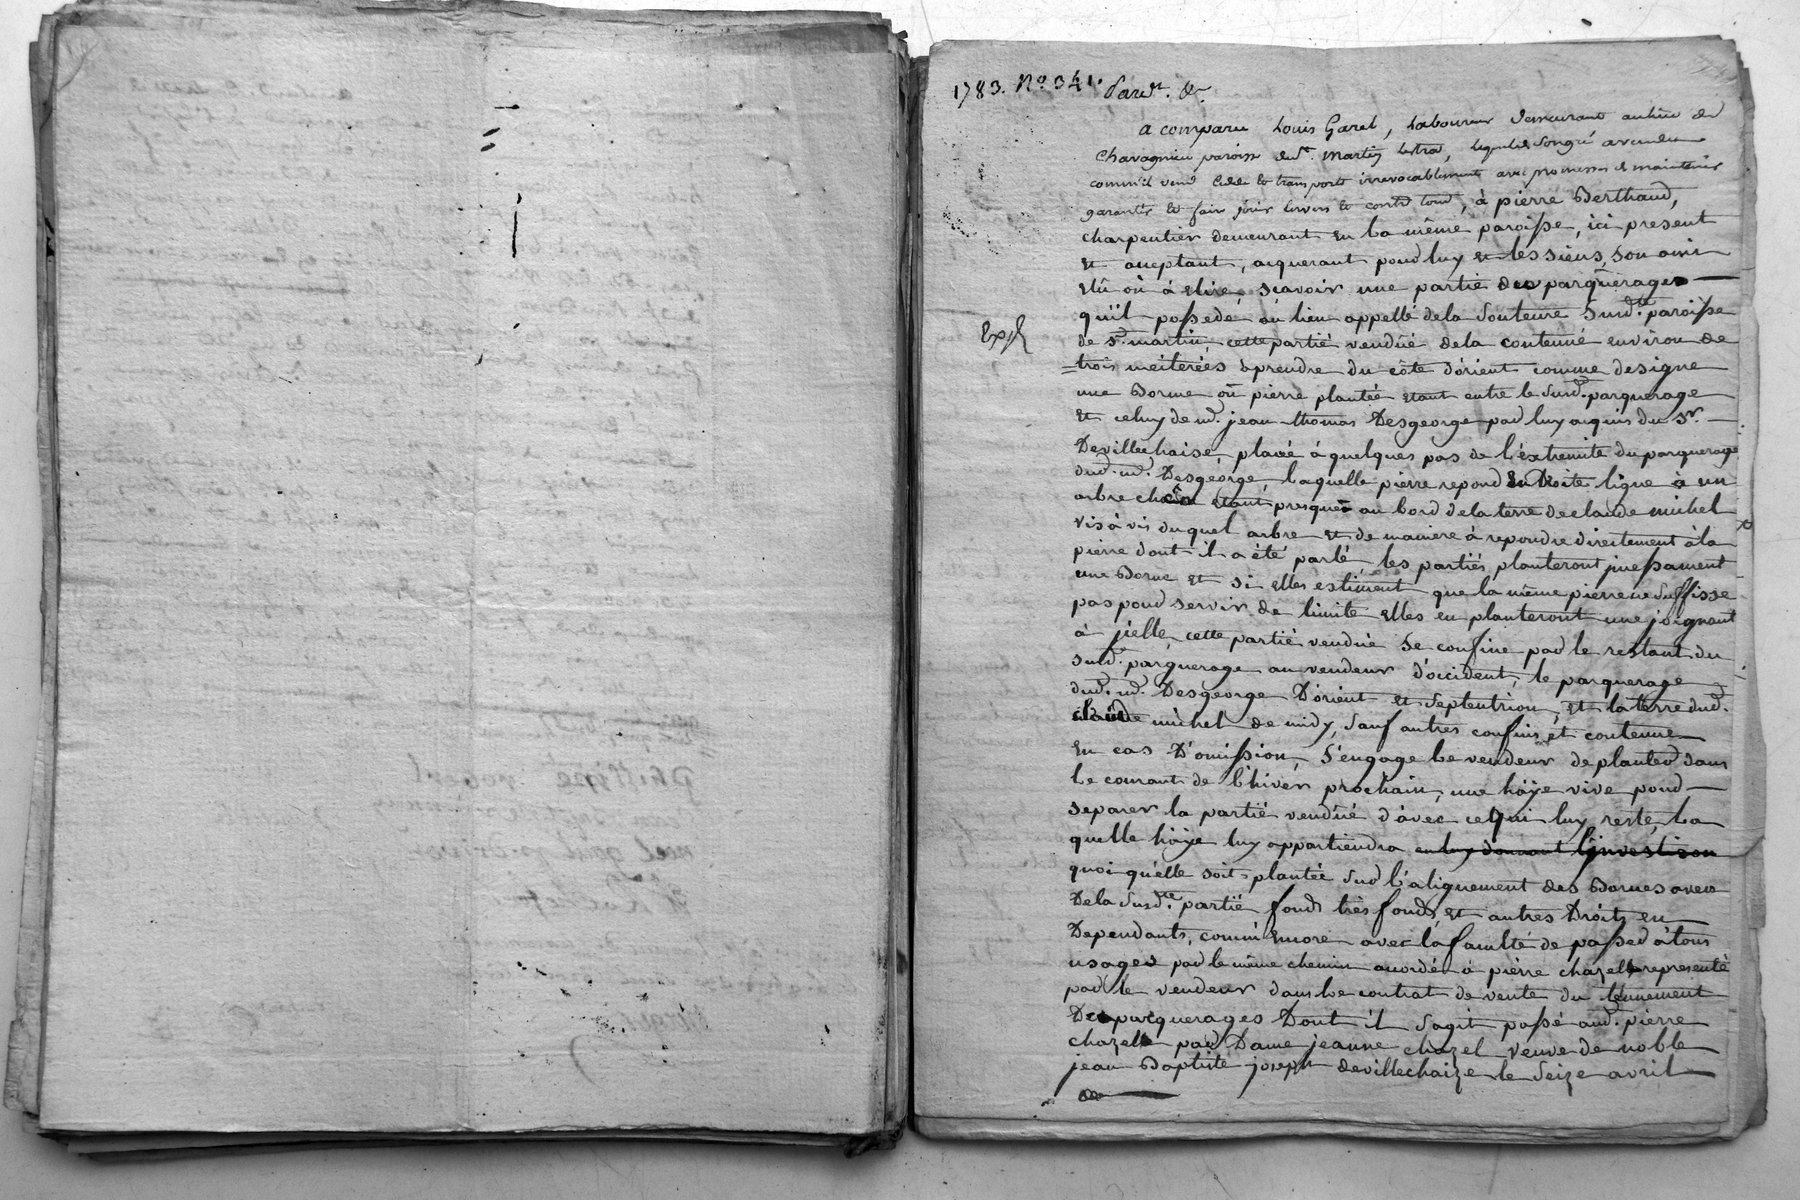 1783. No. 341.
Pard.t &c.
a comparu Louis Garel, Laboureur demeurant au lieu de
Chavagnieu paroisse de St. Martin Lestra, lequel de son gré a vendu
comm'il vend cede et transporte irrevocablement avec promesses de maintenir
garantir et faire jouir envers et contre tous, à pierre Berthaud,
charpentier demeurant en la même paroisse, ici present
et acceptant, acquerant pour luy et les siens, son amis
elû où à elire, scavoir une partie des parquerages
qu'il possede au lieu appellé de la Souteure Susd.te paroisse
Exp.é
de St. martin, cette partie vendüe de la contenue environ de
trois méiterées à prendre du côte d'orient comme designe
une Borne où pierre plantée etant entre le Susd. parquerage
et celuy de md. jean thomas Desgeorge par luy acquis du Sr.
Devillechaise, placée à quelques pas de l'extremite du parquerage
dud. md. Desgeorge, laquelle pierre repond en Droite ligne à un
arbre chêne etant presque au bord de la terre de claude michel
vis à vis du quel arbre et de maniere à repondre directement à la
pierre dont il a été parlé, les parties planteront incessament
une Borne et si elles estiment que la même pierre ne Suffisse
pas pour servir de limite elles en planteront une joignant
à jcelle, cette partie vendüe se confine par le restant du
susd. parquerage au vendeur d'occident, le parquerage
dud. md. Desgeorge D'orient et Septentrion, et la terre dud.
claude michel de midy, Sauf autres confins et contenue
en cas D'omission, S'engage le vendeur de planter dans
le courant de l'hiver prochain, une häye vive pour
separer la partie vendüe d'avec ce qui luy reste, la
quelle häye luy appartiendra en luy donnant l'investison
quoi qu'elle soit plantée sur l'alignement des Bornes avec
De la Susd.te partie fonds très fonds, et autres Droits en
Dependants, comm'encore avec la faculté de passer à tous
usages par le même chemin accordé à pierre chazelle representé
par le vendeur dans le contrat de vente du tennement
Des parquerages Dont il s'agit passé aud. pierre
chazelle par Dame jeanne chazel veuve de noble
jean Baptiste joseph devillechaize le Seize avril
de